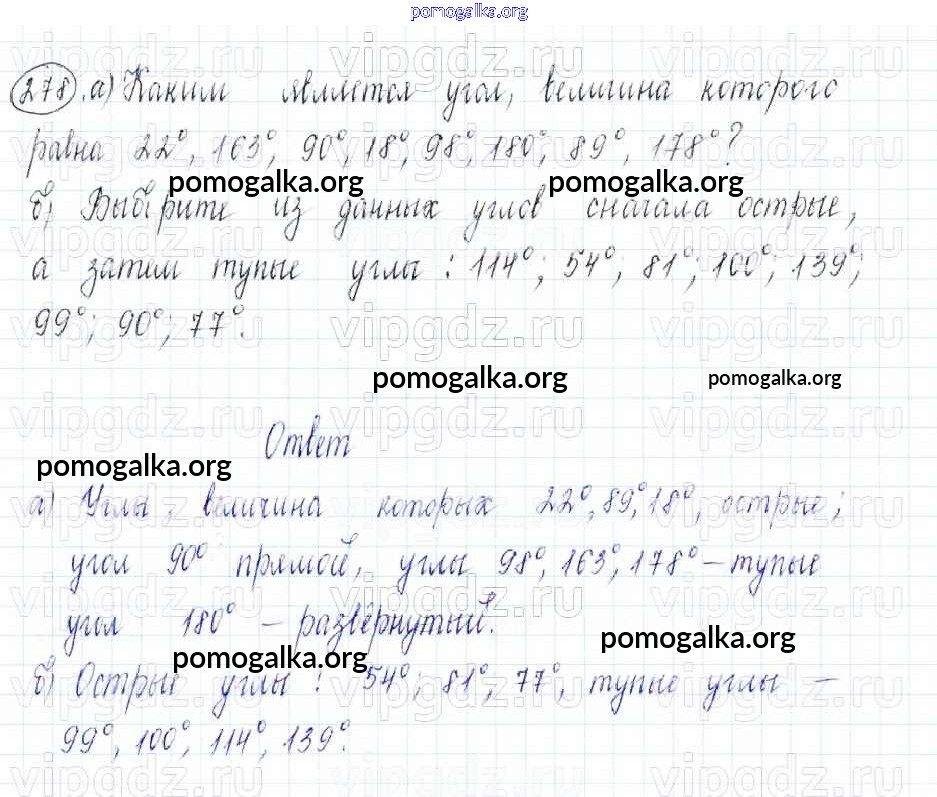 pomogalka.org
278. а) Каким является угол, величина которого
равна 22°, 163°, 90°, 18°, 98°, 180°, 89°, 178°?
pomogalka.org pomogalka.org
б) Выберите из данных углов сначала острые,
а затем тупые углы: 114°; 54°; 81°; 100°; 139°;
99°; 90°; 77°.
vipgdz.ru vipgdz.ru vipgdz.ru
pomogalka.org pomogalka.org
Ответ
pomogalka.org
а) Углы, величина которых 22°, 89°, 18°, острые;
угол 90° прямой, углы 98°, 163°, 178° – тупые
угол 180° – развёрнутый.
pomogalka.org
pomogalka.org
б) Острые углы: 54°; 81°, 77°, тупые углы –
99°, 100°, 114°, 139°.